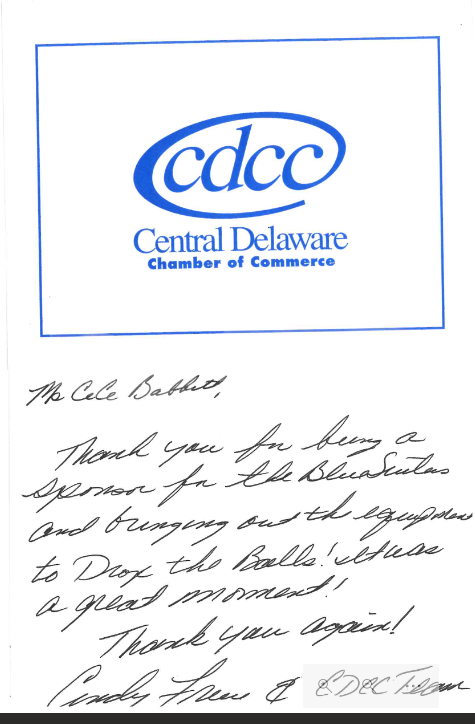 cdcc
Central Delaware
Chamber of Commerce
Ms CeCe Babbitt,
Thank you for being a
sponsor for the BlueSuiters
and bringing out the equipment
to Drop the Balls! It was
a great moment!
Thank you again!
Cindy & CDCC Team